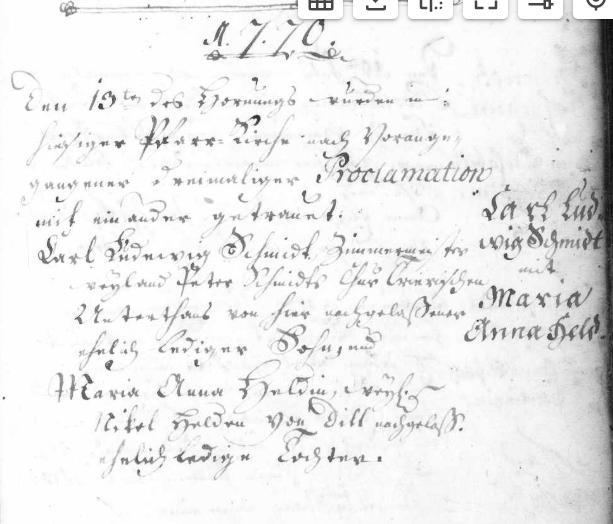 1770.
Den 13ten des Hornungs wurden in
hiesiger Pfarr-Kirche nach Vorange-
gangener dreimaliger Proclamation
mit einander getrauet:
Carl Ludewig Schmidt, Zimmermeister
weyland Peter Schmidts Chur Trierischen
Unterthans von hier nachgelaßener
ehelich lediger Sohn, und
Maria Anna Heldin, weyl.
Nikel Helden von Dill nachgelaß.
ehelich ledige Tochter.
Carl Lud-
wig Schmidt
mit
Maria
Anna Held.